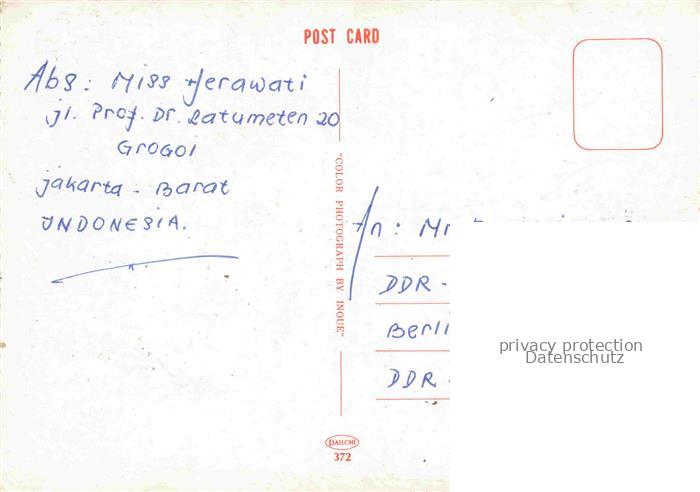 POST CARD
Abs: Miss Herawati
jl. Prof. Dr. Latumeten 20
GROGOl
jakarta - Barat
INDONESIA.
"COLOR PHOTOGRAPH BY INOUE"
An: Mr
DDR -
Berli
DDR -
privacy protection
Datenschutz
DAIICHI
372